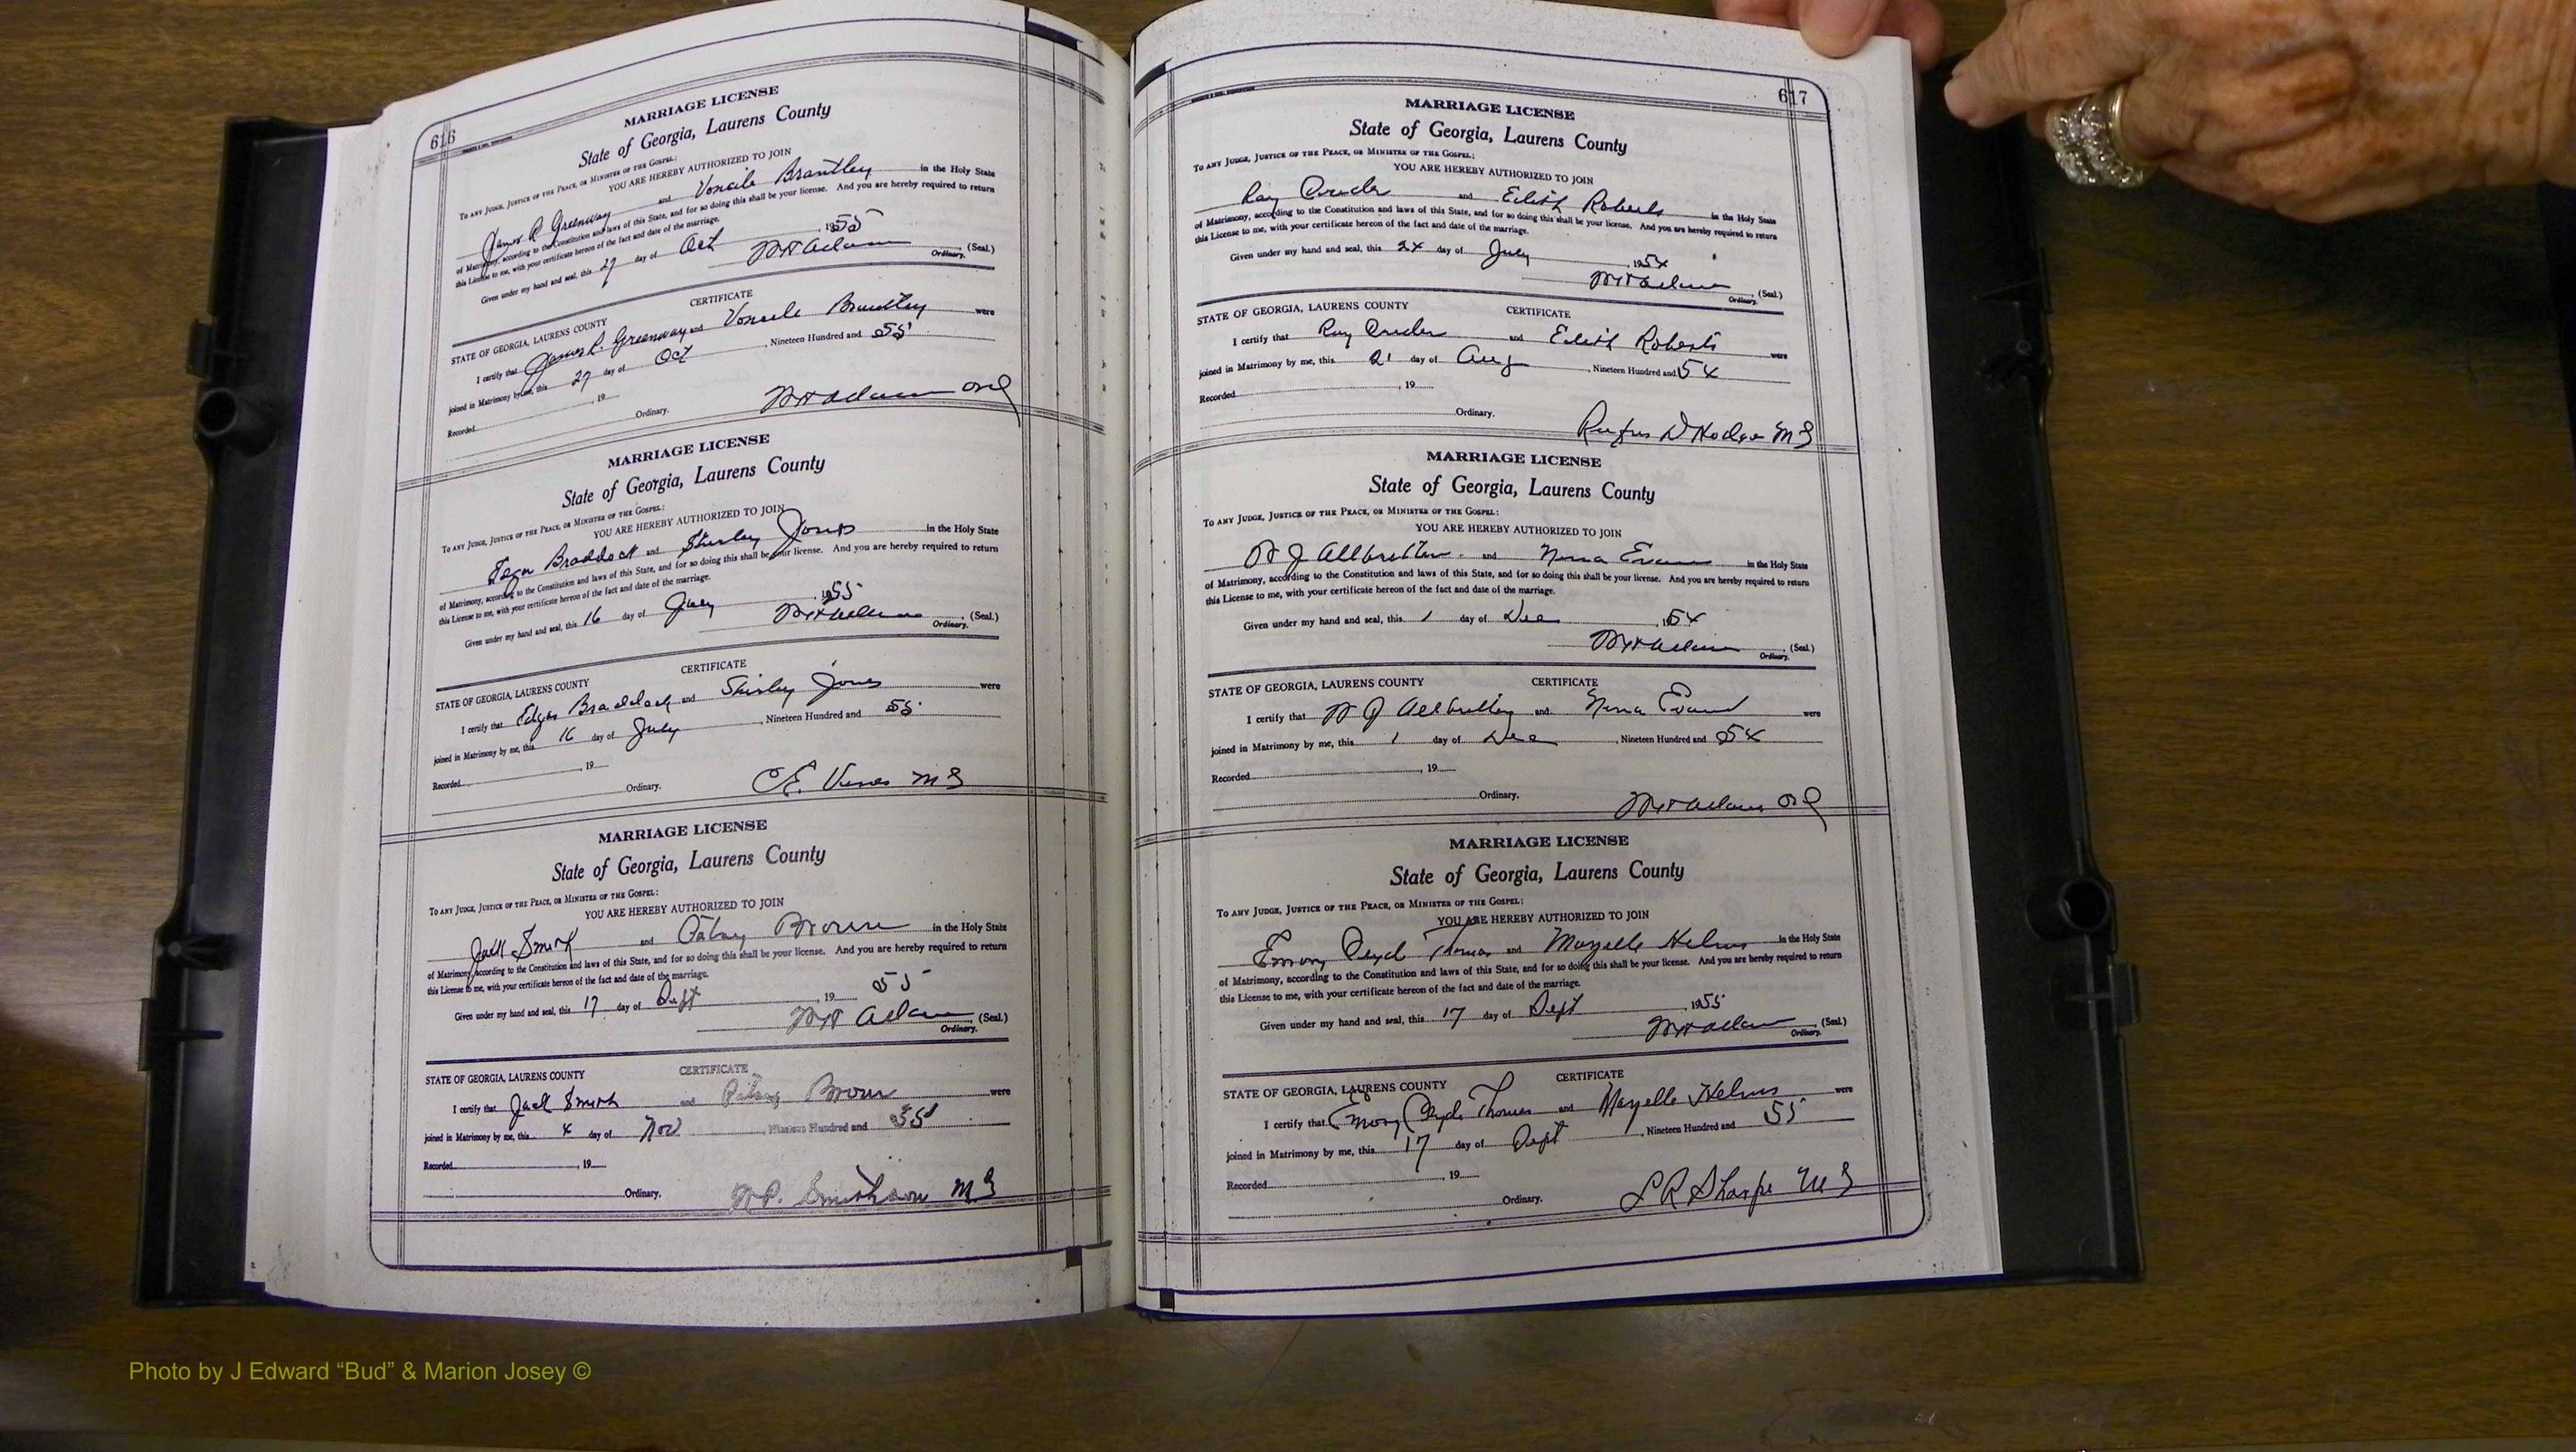 616
MARRIAGE LICENSE
State of Georgia, Laurens County
TO ANY JUDGE, JUSTICE OF THE PEACE, OR MINISTER OF THE GOSPEL:
YOU ARE HEREBY AUTHORIZED TO JOIN
James R Greenway and Voncile Brantley in the Holy State
of Matrimony, according to the Constitution and laws of this State, and for so doing this shall be your license. And you are hereby required to return
this License to me, with your certificate hereon of the fact and date of the marriage.
Given under my hand and seal, this 27 day of Oct, 1955
Adams (Seal.)
Ordinary.
CERTIFICATE
STATE OF GEORGIA, LAURENS COUNTY
I certify that James R. Greenway and Voncile Brantley were
joined in Matrimony by me, this 27 day of Oct, Nineteen Hundred and 55
Recorded, 19
Ordinary.
Adams Ord
MARRIAGE LICENSE
State of Georgia, Laurens County
TO ANY JUDGE, JUSTICE OF THE PEACE, OR MINISTER OF THE GOSPEL:
YOU ARE HEREBY AUTHORIZED TO JOIN
Braddock and Shirley Jones in the Holy State
of Matrimony, according to the Constitution and laws of this State, and for so doing this shall be your license. And you are hereby required to return
this License to me, with your certificate hereon of the fact and date of the marriage.
Given under my hand and seal, this 16 day of July, 1955
(Seal.)
Ordinary.
CERTIFICATE
STATE OF GEORGIA, LAURENS COUNTY
I certify that Edgar Braddock and Shirley Jones were
joined in Matrimony by me, this 16 day of July, Nineteen Hundred and 55
Recorded, 19
Ordinary.
C.E. Vines M G
MARRIAGE LICENSE
State of Georgia, Laurens County
TO ANY JUDGE, JUSTICE OF THE PEACE, OR MINISTER OF THE GOSPEL:
YOU ARE HEREBY AUTHORIZED TO JOIN
Jack Smith and Patsy Brown in the Holy State
of Matrimony, according to the Constitution and laws of this State, and for so doing this shall be your license. And you are hereby required to return
this License to me, with your certificate hereon of the fact and date of the marriage.
Given under my hand and seal, this 17 day of Sept, 19 55
Adams (Seal.)
Ordinary.
CERTIFICATE
STATE OF GEORGIA, LAURENS COUNTY
I certify that Jack Smith and Patsy Brown were
joined in Matrimony by me, this 4 day of Nov, Nineteen Hundred and 55
Recorded, 19
Ordinary.
Smithson M G
617
MARRIAGE LICENSE
State of Georgia, Laurens County
TO ANY JUDGE, JUSTICE OF THE PEACE, OR MINISTER OF THE GOSPEL:
YOU ARE HEREBY AUTHORIZED TO JOIN
Ray and Edith Roberts in the Holy State
of Matrimony, according to the Constitution and laws of this State, and for so doing this shall be your license. And you are hereby required to return
this License to me, with your certificate hereon of the fact and date of the marriage.
Given under my hand and seal, this 24 day of July, 1954
(Seal.)
Ordinary.
CERTIFICATE
STATE OF GEORGIA, LAURENS COUNTY
I certify that Ray and Edith Roberts were
joined in Matrimony by me, this 21 day of Aug, Nineteen Hundred and 54
Recorded, 19
Ordinary.
Rufus D Hodges M G
MARRIAGE LICENSE
State of Georgia, Laurens County
TO ANY JUDGE, JUSTICE OF THE PEACE, OR MINISTER OF THE GOSPEL:
YOU ARE HEREBY AUTHORIZED TO JOIN
J Allbritten and Evans in the Holy State
of Matrimony, according to the Constitution and laws of this State, and for so doing this shall be your license. And you are hereby required to return
this License to me, with your certificate hereon of the fact and date of the marriage.
Given under my hand and seal, this 1 day of Dec, 1954
(Seal.)
Ordinary.
CERTIFICATE
STATE OF GEORGIA, LAURENS COUNTY
I certify that J Allbritten and Evans were
joined in Matrimony by me, this 1 day of Dec, Nineteen Hundred and 54
Recorded, 19
Ordinary.
Adams Ord
MARRIAGE LICENSE
State of Georgia, Laurens County
TO ANY JUDGE, JUSTICE OF THE PEACE, OR MINISTER OF THE GOSPEL:
YOU ARE HEREBY AUTHORIZED TO JOIN
Emory Clyde Thomas and Mayzelle Helms in the Holy State
of Matrimony, according to the Constitution and laws of this State, and for so doing this shall be your license. And you are hereby required to return
this License to me, with your certificate hereon of the fact and date of the marriage.
Given under my hand and seal, this 17 day of Sept, 1955
Adams (Seal.)
Ordinary.
CERTIFICATE
STATE OF GEORGIA, LAURENS COUNTY
I certify that Emory Clyde Thomas and Mayzelle Helms were
joined in Matrimony by me, this 17 day of Sept, Nineteen Hundred and 55
Recorded, 19
Ordinary.
S R Sharpe M G
Photo by J Edward “Bud” & Marion Josey ©